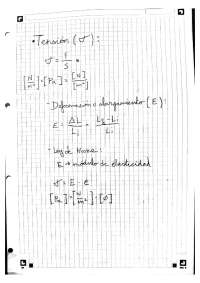 • Tensión (σ):
σ = F/S
[N/m²] = [Pa] = [N]/[m²]
- Deformación o alargamiento (E):
E = ΔL/Li = Lf - Li/Li
- Ley de Hooke:
E → módulo de elasticidad
σ = E · ε
[Pa] = [N/m²] · [Ø]